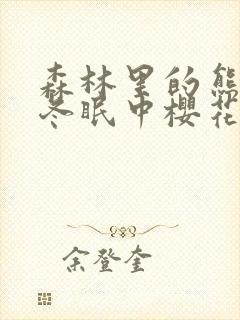 森林里的熊
冬眠中樱花
余登奎